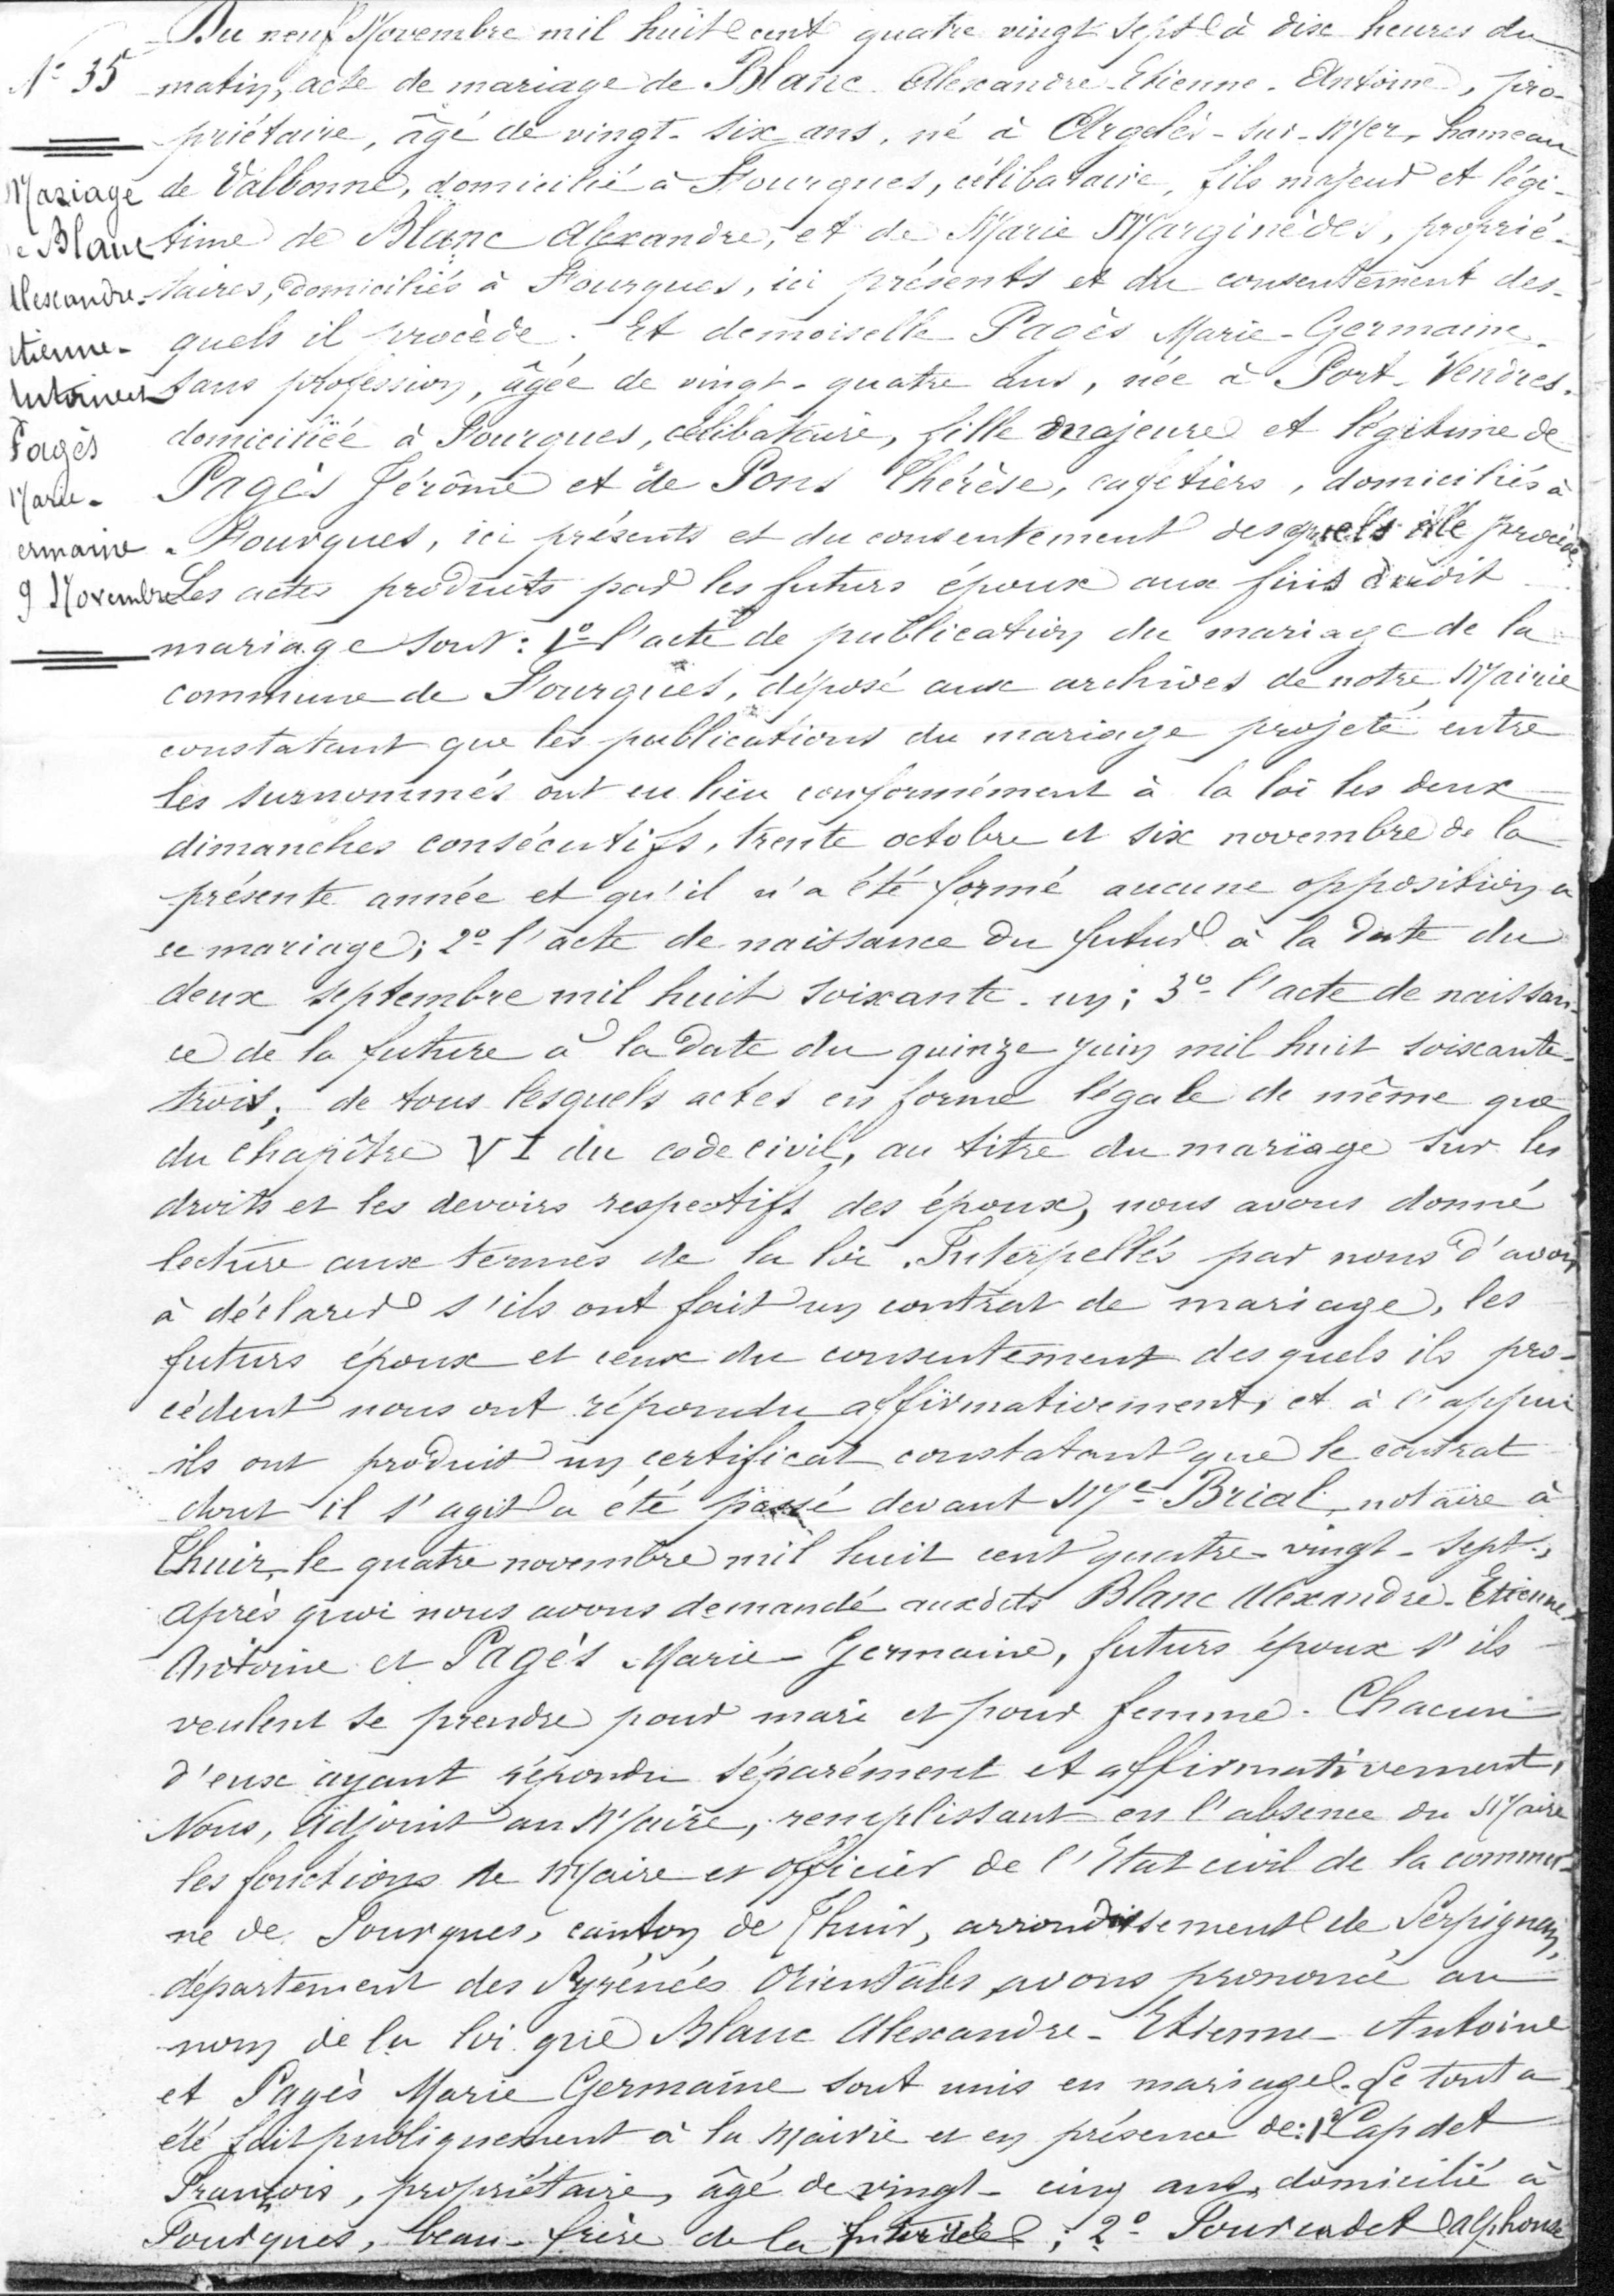 Du neuf Novembre mil huit cent quatre vingt sept à dix heures du
N° 35
matin, acte de mariage de Blanc Alexandre-Etienne-Antoine, pro-
priétaire, âgé de vingt-six ans, né à Argelès-sur-Mer, hameau
Mariage
de Valbonne, domicilié à Fourques, célibataire, fils majeur et légi-
e Blanc
time de Blanc Alexandre, et de Marie Marginèdes, proprié-
Alexandre-
taires, domiciliés à Fourques, ici présents et du consentement des-
etienne-
quels il procède. Et demoiselle Pagès Marie-Germaine
Antoine et
sans profession, âgée de vingt-quatre ans, née à Port-Vendres.
Pagès
domiciliée à Fourques, célibataire, fille majeure et légitime de
Marie-
Pagès Jérôme et de Pons Thérèse, cafetiers, domiciliés à
ermaine
Fourques, ici présents et du consentement desquels elle procède
9 Novembre
Les actes produits par les futurs époux aux fins dudit
mariage sont: 1° l'acte de publication du mariage de la
commune de Fourques, déposé aux archives de notre Mairie
constatant que les publications du mariage projeté entre
les surnommés ont eu lieu conformément à la loi les deux
dimanches consécutifs, trente octobre et six novembre de la
présente année et qu'il n'a été formé aucune opposition a
ce mariage; 2° l'acte de naissance du futur à la date du
deux septembre mil huit soixante-un; 3° l'acte de naissan-
ce de la future à la date du quinze juin mil huit soixante-
trois; de tous lesquels actes en forme légale de même que
du chapître VI du code civil, au titre du mariage sur les
droits et les devoirs respectifs des époux, nous avons donné
lecture aux termes de la loi. Interpellés par nous d'avoir
à déclarer s'ils ont fait un contrat de mariage, les
futurs époux et ceux du consentement desquels ils pro-
cèdent nous ont répondu affirmativement, et à l'appui
ils ont produit un certificat constatant que le contrat
dont il s'agit a été passé devant Me Brial, notaire à
Thuir, le quatre novembre mil huit cent quatre-vingt-sept.,
Après quoi nous avons demandé auxdits Blanc Alexandre-Etienne
Antoine et Pagès Marie-Germaine, futurs époux s'ils
veulent se prendre pour mari et pour femme. Chacun
d'eux ayant répondu séparément et affirmativement,
Nous, Adjoint au Maire, remplissant en l'absence du Maire
les fonctions de Maire et officier de l'Etat civil de la commu-
ne de Fourques, canton de Thuir, arrondissement de Perpignan,
département des Pyrénées Orientales avons prononcé au
nom de la loi que Blanc Alexandre-Etienne-Antoine
et Pagès Marie Germaine sont unis en mariage. Le tout a
été fait publiquement à la Mairie et en présence de: 1° Capdet
François, propriétaire, âgé de vingt-cinq ans, domicilié à
Fourques, beau-frère de la future; 2° Pourcadet Alphonse